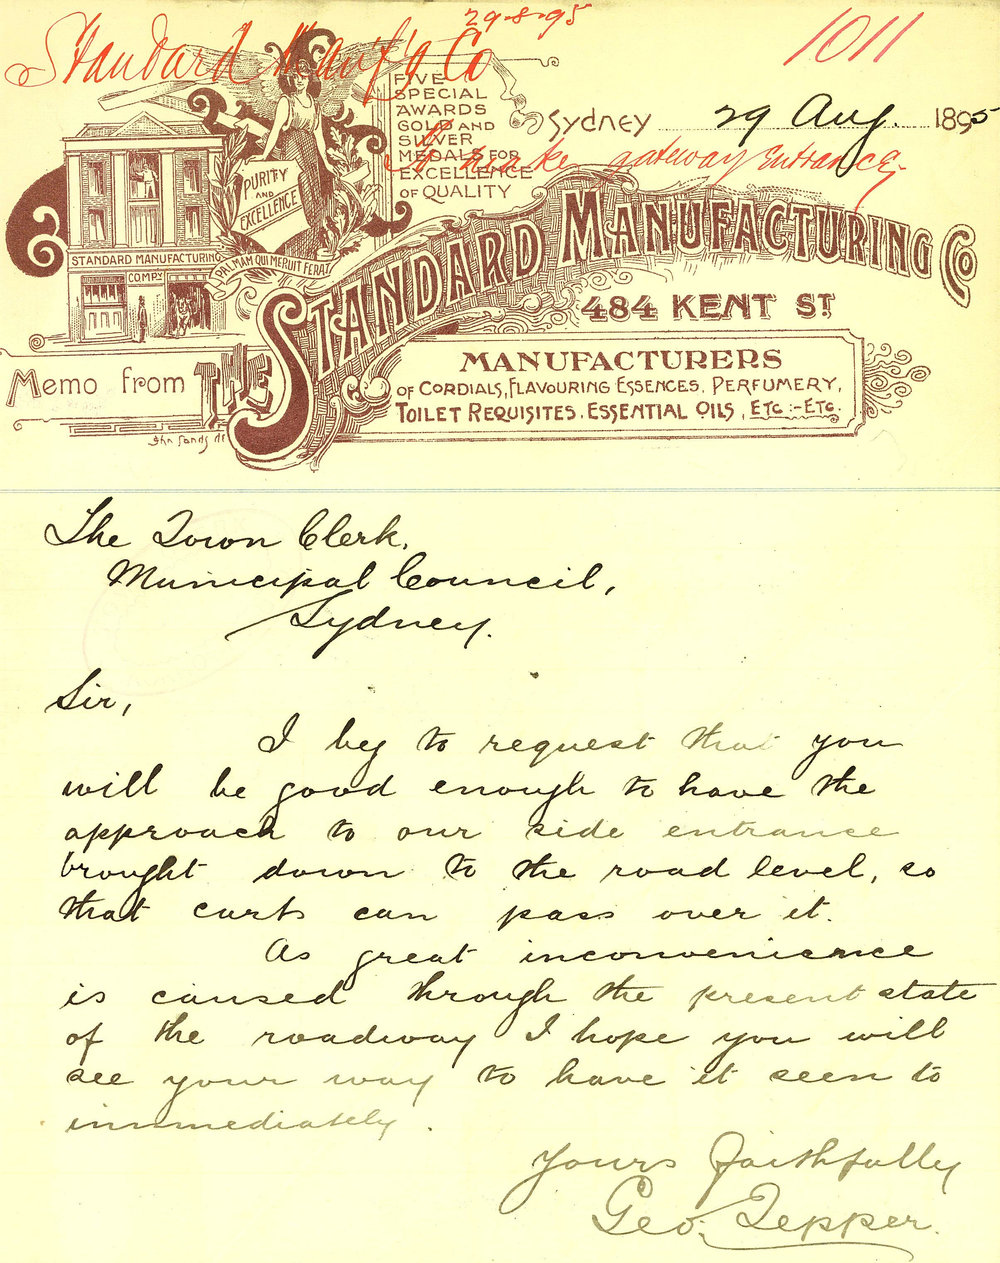 29-8-95
Standard Manufg Co
1011
FIVE
SPECIAL
AWARDS
GOLD AND
SILVER
MEDALS FOR
EXCELLENCE
OF QUALITY
Sydney 29 Aug. 1895
To make gateway Entrance,
PURITY
AND
EXCELLENCE
PALMAM QUI MERUIT FERAT
STANDARD MANUFACTURING
COMPY
Memo from THE STANDARD MANUFACTURING Co
484 KENT ST
MANUFACTURERS
OF CORDIALS, FLAVOURING ESSENCES, PERFUMERY,
TOILET REQUISITES, ESSENTIAL OILS, ETC :- ETC.
John Sands
The Town Clerk,
Municipal Council,
Sydney.
Sir,
I beg to request that you
will be good enough to have the
approach to our side entrance
brought down to the road level, so
that carts can pass over it.
As great inconvenience
is caused through the present state
of the roadway I hope you will
see your way to have it seen to
immediately.
Yours faithfully
Geo. Tepper.